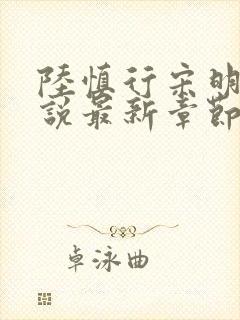 陸慎行宋明
說最新章節
卓泳曲